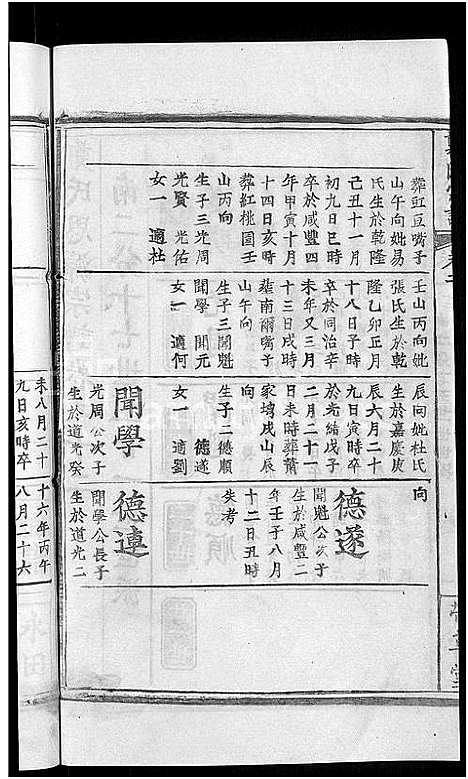 葬豇豆嘴子
山午向妣易
氏生於乾隆
己丑十一月
初九日巳時
卒於咸豐四
年甲寅十月
十四日亥時
葬紅桃園壬
山丙向
生子三光周
光賢 光佑
女一 適杜
壬山丙向妣
張氏生於乾
隆乙卯正月
十八日子時
卒於同治辛
未年又三月
十三日戌時
葬南爾嘴子
山午向
生子三聞魁
聞學 聞元
女一 適何
辰向妣杜氏
生於嘉慶庚
辰六月二十
九日寅時卒
於光緒戊子
二月二十二
日未時葬舊
家塆戌山辰
向
生子二德順
德遂
女一 適劉
聞學
光周公次子
生於道光癸
未八月二十
九日亥時卒
向
德遂
聞魁公次子
生於咸豐二
年壬子八月
十二日丑時
失考
德連
聞學公長子
生於道光二
十六年丙午
八月二十六